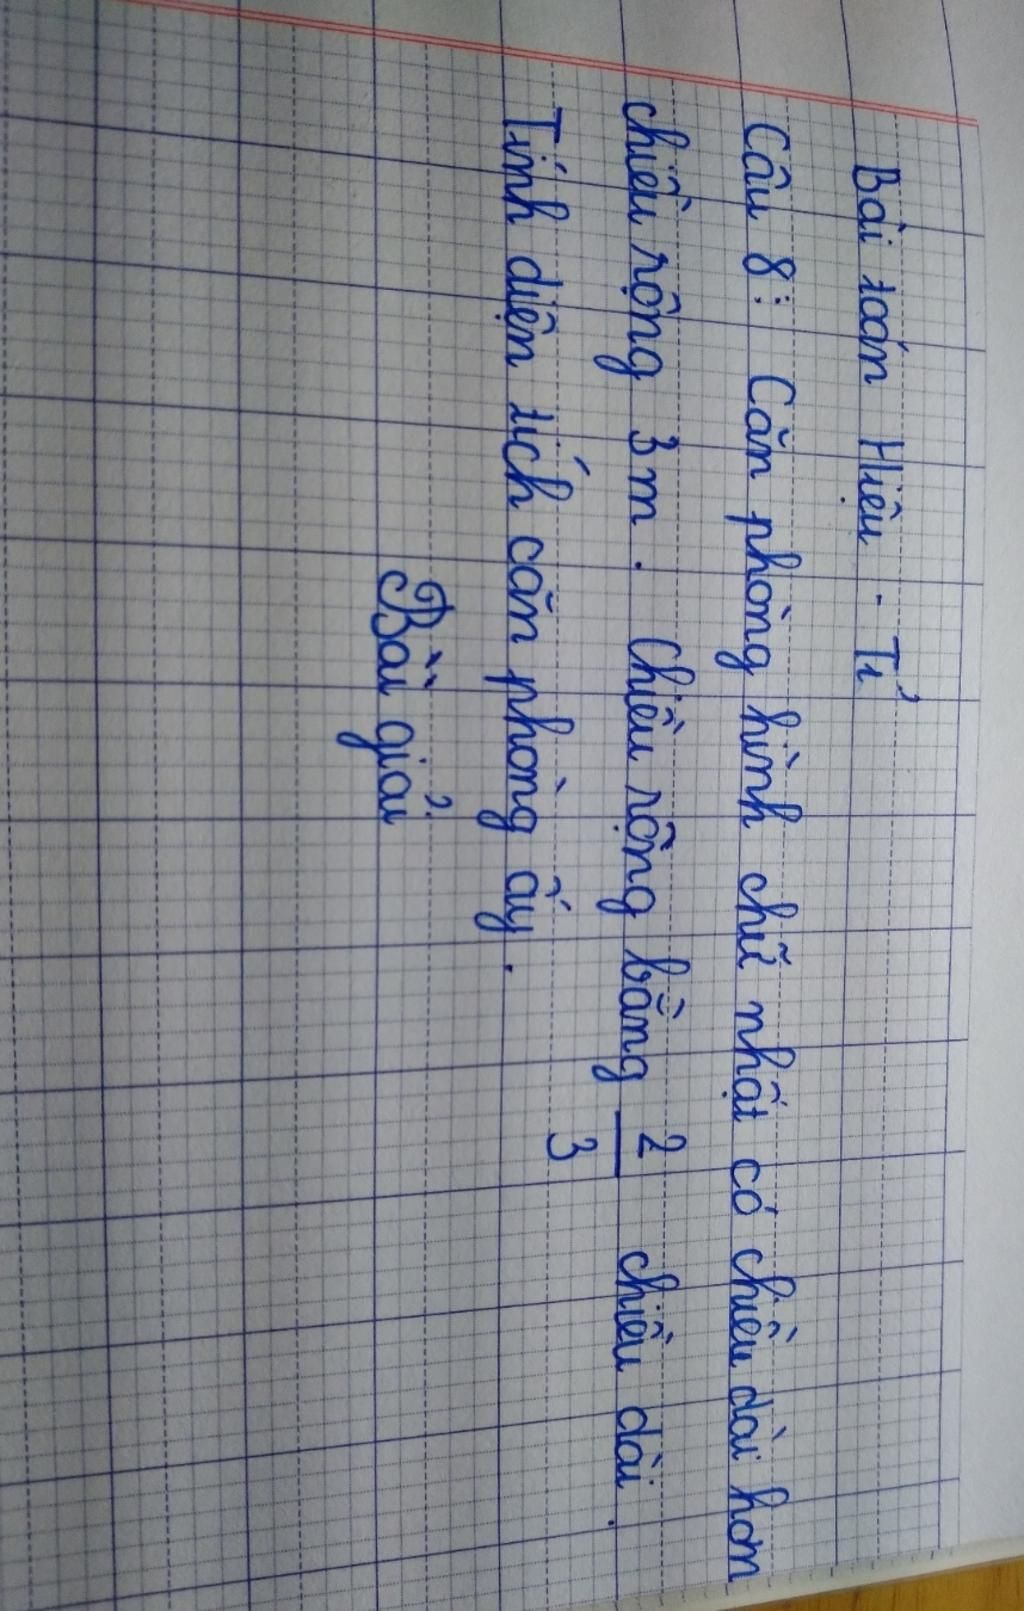 Bài toán Hiệu - Tỉ
Câu 8: Căn phòng hình chữ nhật có chiều dài hơn
chiều rộng 3 m. Chiều rộng bằng 2/3 chiều dài.
Tính diện tích căn phòng ấy.
Bài giải